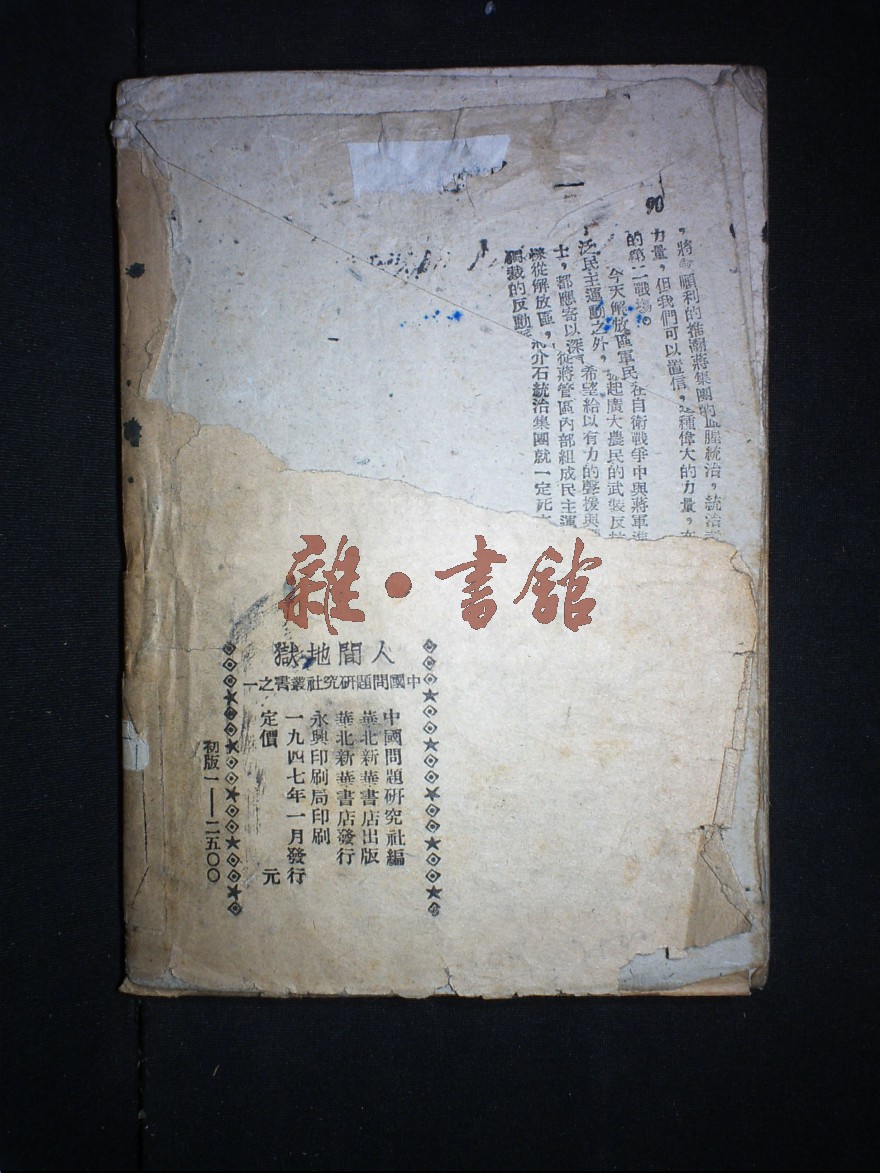 90
，將順利的推潮蔣集團的血腥統治，統治
力量，但我們可以置信，這種偉大的力量，在
的第二戰場。
今天解放區軍民在自衛戰爭中與蔣軍進
泛民主運動之外，起廣大農民的武裝反抗
士，都應寄以深 希望給以有力的聲援與
從蔣管區內部組成民主運
從解放區，蔣介石統治集團就一定死
獨裁的反動
雜·書館
人間地獄
中國問題研究社叢書之一
中國問題研究社編
華北新華書店出版
華北新華書店發行
永興印刷局印刷
一九四七年一月發行
定價 元
初版一——二五〇〇